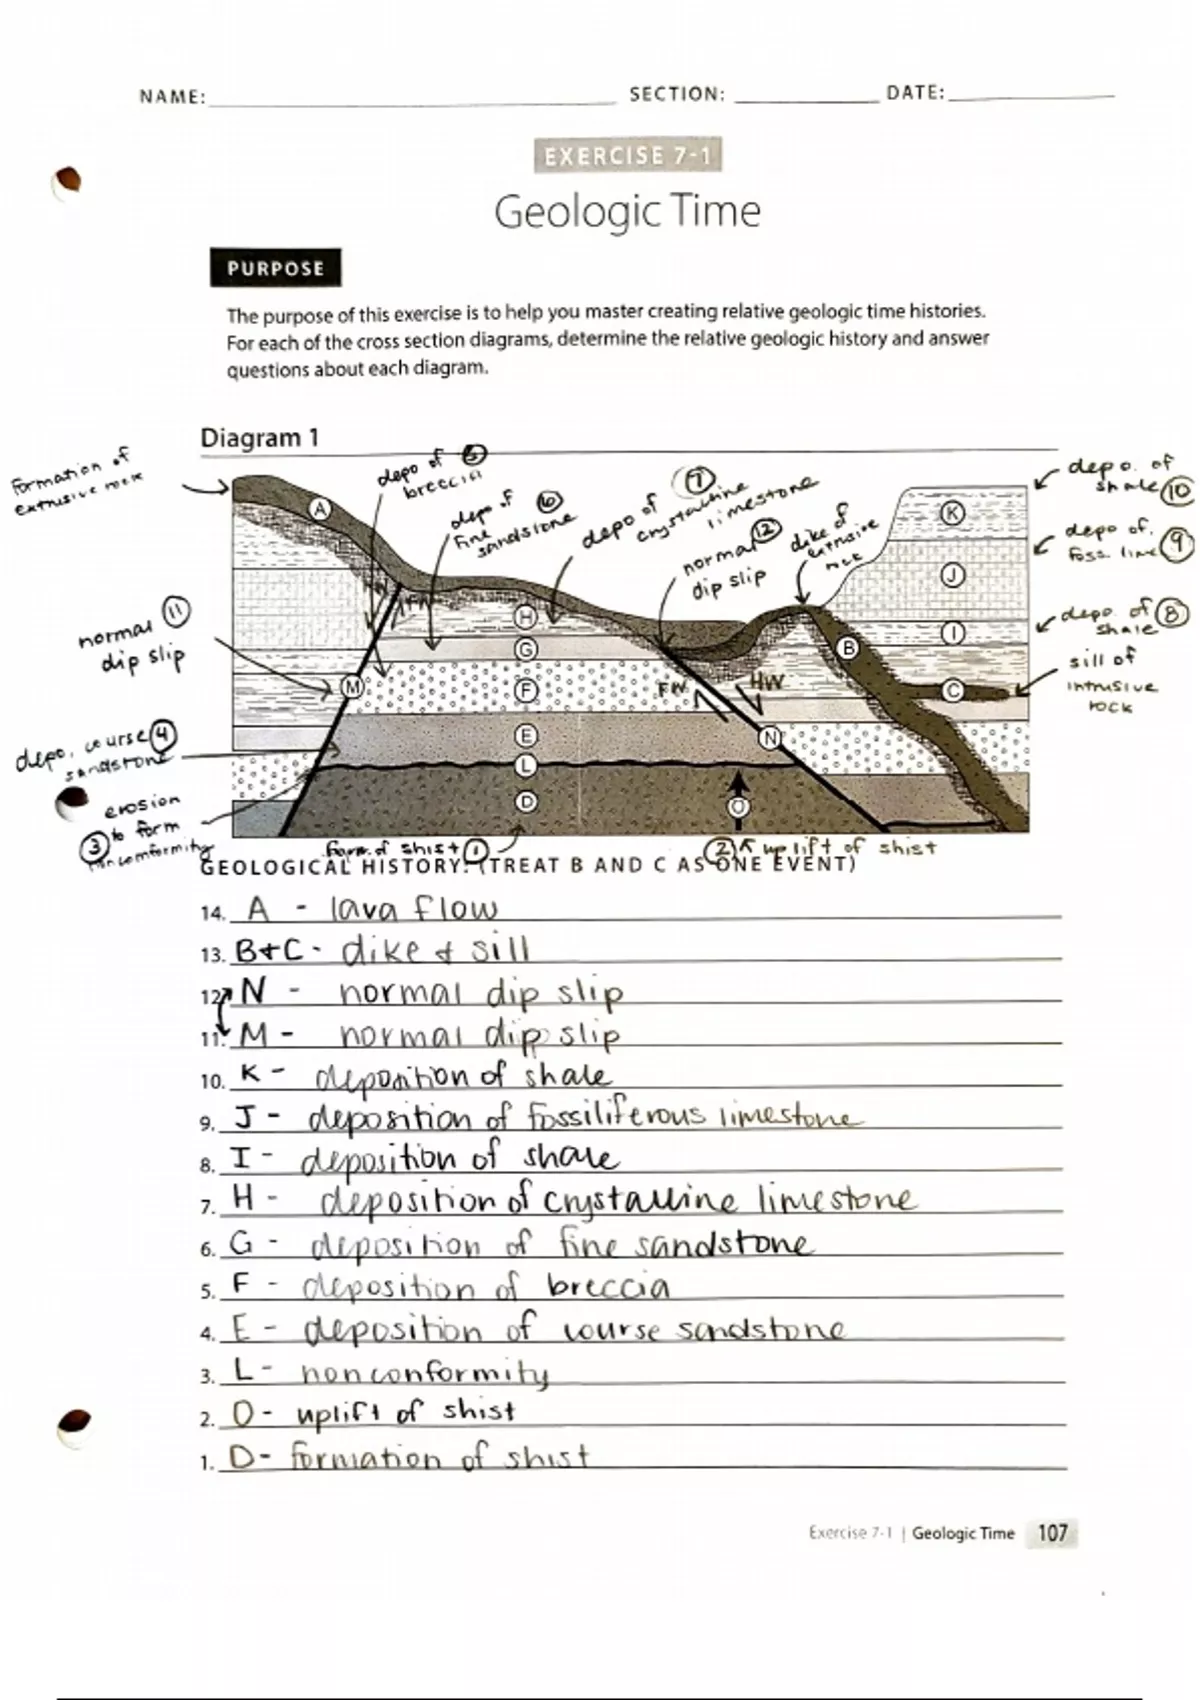 NAME: SECTION: DATE:
EXERCISE 7-1
Geologic Time
PURPOSE
The purpose of this exercise is to help you master creating relative geologic time histories.
For each of the cross section diagrams, determine the relative geologic history and answer
questions about each diagram.
Diagram 1
formation of
extrusive rock
depo of 5
breccia
depo of 6
fine
sandstone
depo of 7
crystalline
limestone
normal 12
dip slip
dike of
extrusive
rock
depo. of
shale 10
depo of.
foss. lime 9
depo. of 8
shale
sill of
intrusive
rock
normal 11
dip slip
depo. course 4
sandstone
erosion
3 to form
nonconformity
A
K
J
I
H
G
B
C
M
F
FW
HW
N
E
L
D
O
form. of shist 1
2 uplift of shist
GEOLOGICAL HISTORY: (TREAT B AND C AS ONE EVENT)
14. A - lava flow
13. B+C - dike & sill
12. N - normal dip slip
11. M - normal dip slip
10. K - deposition of shale
9. J - deposition of fossiliferous limestone
8. I - deposition of shale
7. H - deposition of crystalline limestone
6. G - deposition of fine sandstone
5. F - deposition of breccia
4. E - deposition of course sandstone
3. L - nonconformity
2. O - uplift of shist
1. D - formation of shist
Exercise 7-1 | Geologic Time 107